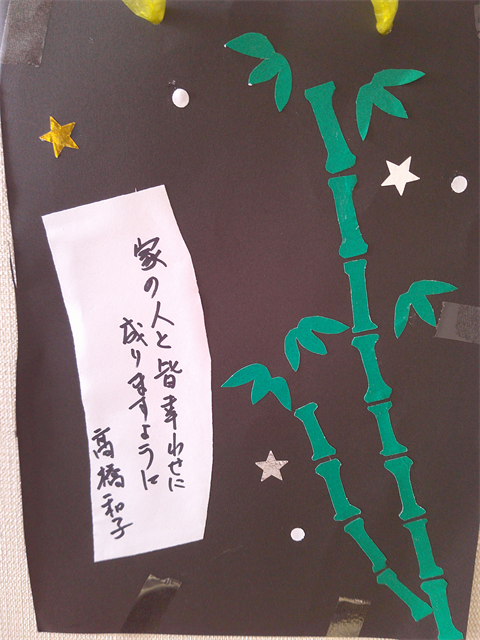 家の人と皆幸わせに
成りますように
高橋和子